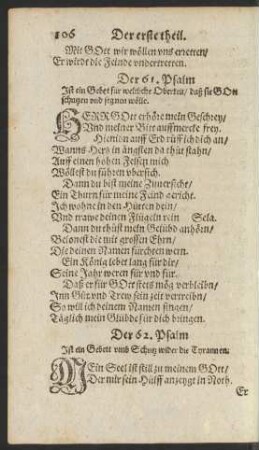 106 Der erste theil.
Mit GOtt wir wöllen vns erretten/
Er wirdt die Feinde vndertretten.
Der 61. Psalm
Ist ein Gebet für weltliche Oberkeit/ daß sie GOtt
schützen vnd segnen wölle.
HERR Gott erhöre mein Geschrey/
Vnd meiner Bitt auffmercke frey.
Hienion auff Erd rüff ich dich an/
Wanns Hertz in ängsten da thut stahn/
Auff einen hohen Felsen mich
Wöllest du führen vber sich.
Dann du bist meine Zuuersicht/
Ein Thurn für meine Feind gericht.
Ich wohne in den Hütten dein/
Vnd trawe deinen Flügeln rein Sela.
Dann du thüst mein Gelübd anhörn/
Belonest die mit grossen Ehrn/
Die deinen Namen fürchten wern.
Ein König lebet lang für dir/
Seine Jahr weren für vnd für.
Daß er für Gott stets mög verbleibn/
Inn Güt vnd Trew sein zeit vertreibn/
So will ich deinem Namen singen/
Täglich mein Glübde für dich bringen.
Der 62. Psalm
Ist ein Gebett vmb Schutz wider die Tyrannen.
MEin Seel ist still zu meinem GOtt/
Der mir sein Hülff anzeygt in Noth.
Er